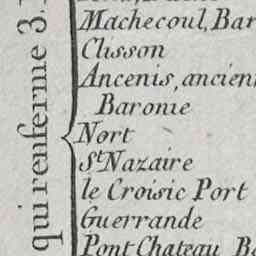 qui renferme 3.
Machecoul, Bar
Clisson
Ancenis, ancien
Baronie
Nort
St Nazaire
le Croisic Port
Guerrande
Pont Chateau